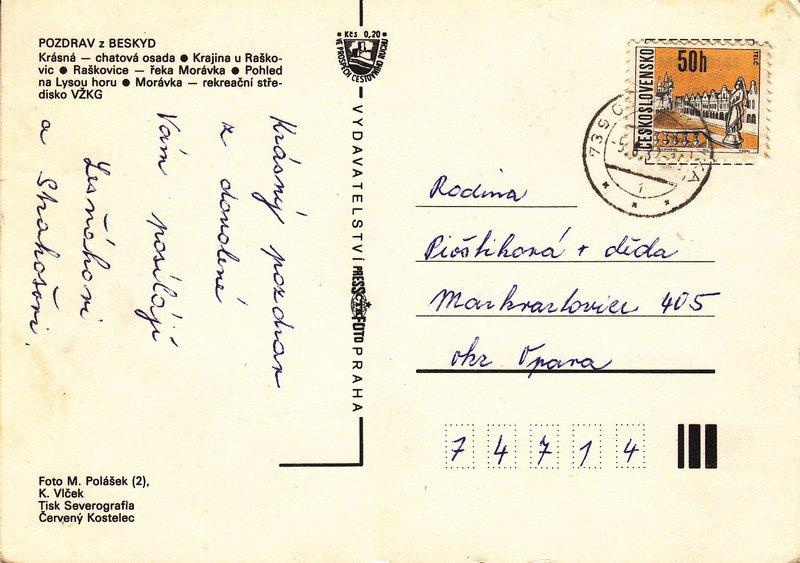 POZDRAV z BESKYD
Krásná — chatová osada ● Krajina u Raško-
vic ● Raškovice — řeka Morávka ● Pohled
na Lysou horu ● Morávka — rekreační stře-
disko VŽKG
Krásný pozdrav
z dovolené
Vám posílají
Lesňákovi
a Strakošovi.
Foto M. Polášek (2),
K. Vlček
Tisk Severografia
Červený Kostelec
Kčs 0,20
VE PROSPĚCH CESTOVNÍHO RUCHU
VYDAVATELSTVÍ PRESSFOTO PRAHA
ČESKOSLOVENSKO
50h
TELČ
739
1
Rodina
Pioštiková + děda
Markvartovice 405
okr Opava
74714